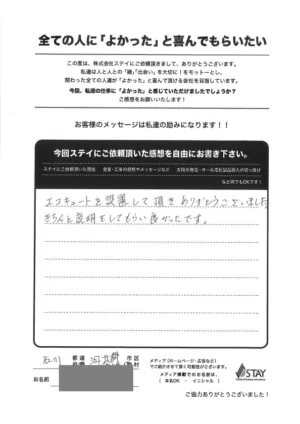 全ての人に「よかった」と喜んでもらいたい
この度は、株式会社ステイにご依頼頂きまして、ありがとうございます。
私達は人と人との「縁」「出会い」を大切に！をモットーとし、
関わった全ての人達が「よかった」と喜んで頂ける会社を目指しています。
今回、私達の仕事に“よかった”と感じていただけましたでしょうか？
ご感想をお願いいたします！
お客様のメッセージは私達の励みになります！！
今回ステイにご依頼頂いた感想を自由にお書き下さい。
ステイにご依頼頂いた理由 営業・工事の感想やメッセージなど 太陽光発電・オール電化製品購入の切っ掛け
など何でもOKです！
エコキュートを設置して頂きありがとうございました
きちんと説明をしてもらい良かったです。
石川 都道府県 市区町村
メディア（ホームページ・広告など）
でご紹介させて頂く可能性がございます。
メディア掲載でのお名前は、
（ 本名OK ・ イニシャル ）
お名前
STAY
ご協力ありがとうございました！